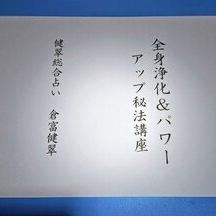 全身浄化&パワー
アップ秘法講座
健翠総合占い　倉富健翠